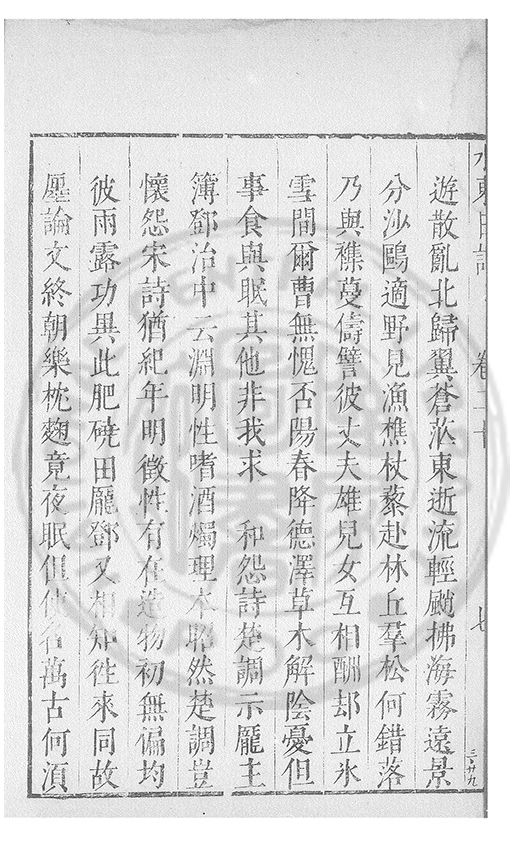 水東日記　卷二十　七
遊散亂北歸翼蒼茫東逝流輕颸拂海霧遠景
分沙鷗適野見漁樵杖藜赴林丘羣松何錯落
乃與樵蔓儔譬彼丈夫雄兒女互相酬却立氷
雪間爾曹無愧否陽春降德澤草木解陰憂但
事食與眠其他非我求　和怨詩楚調示龐主
簿鄧治中云淵明性嗜酒燭理本昭然楚調豈
懷怨宋詩猶紀年明徵性有在造物初無偏均
彼雨露功異此肥磽田龐鄧又相知徃來同故
廛論文終朝樂枕麴竟夜眠但使名萬古何湏
三廿九